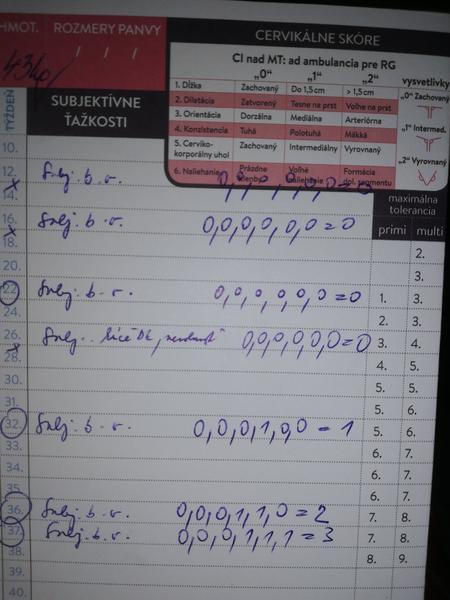 HMOT. ROZMERY PANVY
/ / /
CERVIKÁLNE SKÓRE
CI nad MT: ad ambulancia pre RG
„0“ „1“ „2“ vysvetlivky
1. Dĺžka Zachovaný Do 1,5 cm > 1,5 cm
2. Dilatácia Zatvorený Tesne na prst Voľne na prst
3. Orientácia Dorzálna Mediálna Arteriórna
4. Konzistencia Tuhá Polotuhá Mäkká
5. Cerviko-korporálny uhol Zachovaný Intermediálny Vyrovnaný
6. Naliehanie Prázdne Voľné Formácia
dol. segmentu
„0“ Zachovaný
„1“ Intermed.
„2“ Vyrovnaný
TÝŽDEŇ
SUBJEKTÍVNE ŤAŽKOSTI
maximálna tolerancia
primi multi
10.
12. Subj. b. v. 0,0,0,0,0,0=0
14.
16. Subj. b. v. 0,0,0,0,0,0=0
18. 2.
20. 3.
22. Subj. b. v. 0,0,0,0,0,0=0 1. 3.
24. 2. 3.
26. Subj. 0,0,0,0,0,0=0 3. 4.
28. 4. 5.
30. 5. 5.
31. 5. 6.
32. Subj. b. v. 0,0,0,1,0,0=1 5. 6.
33. 6. 7.
34. 6. 7.
35. 6. 7.
36. Subj. b. v. 0,0,0,1,1,0=2 7. 8.
37. Subj. b. v. 0,0,0,1,1,1=3 7. 8.
38. 8. 9.
40.